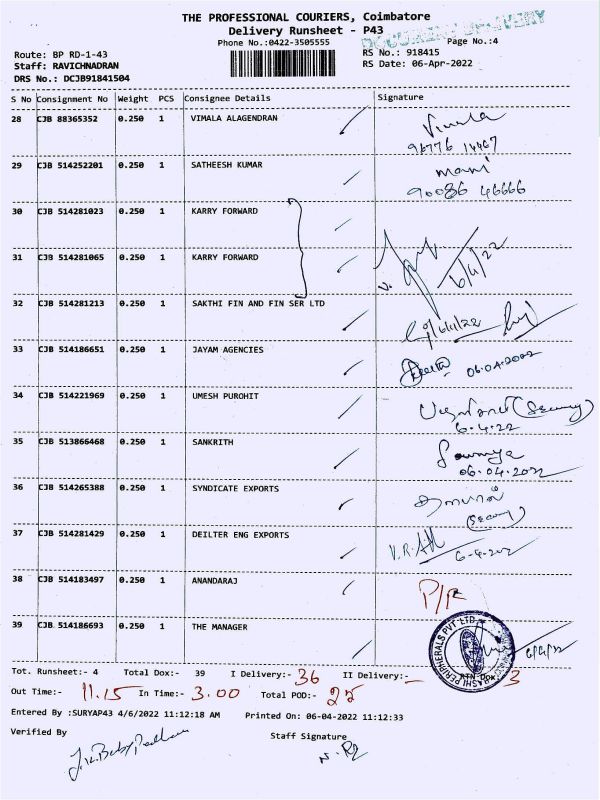 THE PROFESSIONAL COURIERS, Coimbatore
Delivery Runsheet - P43
DOCUMENT DELIVERY
Phone No.:0422-3505555
Page No.:4
Route: BP RD-1-43
RS No.: 918415
Staff: RAVICHNADRAN
RS Date: 06-Apr-2022
DRS No.: DCJB91841504
S No Consignment No Weight PCS Consignee Details Signature
28 CJB 88365352 0.250 1 VIMALA ALAGENDRAN Vimala
96776 14467
29 CJB 514252201 0.250 1 SATHEESH KUMAR mani
90086 46666
30 CJB 514281023 0.250 1 KARRY FORWARD
31 CJB 514281065 0.250 1 KARRY FORWARD 6/4/22
32 CJB 514281213 0.250 1 SAKTHI FIN AND FIN SER LTD 6/4/22
33 CJB 514186651 0.250 1 JAYAM AGENCIES 06.04.2022
34 CJB 514221969 0.250 1 UMESH PUROHIT
6.4.22
35 CJB 513866468 0.250 1 SANKRITH Sowmya
06.04.2022
36 CJB 514265388 0.250 1 SYNDICATE EXPORTS
37 CJB 514281429 0.250 1 DEILTER ENG EXPORTS
38 CJB 514183497 0.250 1 ANANDARAJ
39 CJB 514186693 0.250 1 THE MANAGER 6/4/22
PERIPHERALS PVT LTD
Tot. Runsheet:- 4 Total Dox:- 39 I Delivery:- 36 II Delivery:- - RTN Dox: 3
Out Time:- 11.15 In Time:- 3.00 Total POD:- 25
Entered By :SURYAP43 4/6/2022 11:12:18 AM Printed On: 06-04-2022 11:12:33
Verified By
Staff Signature